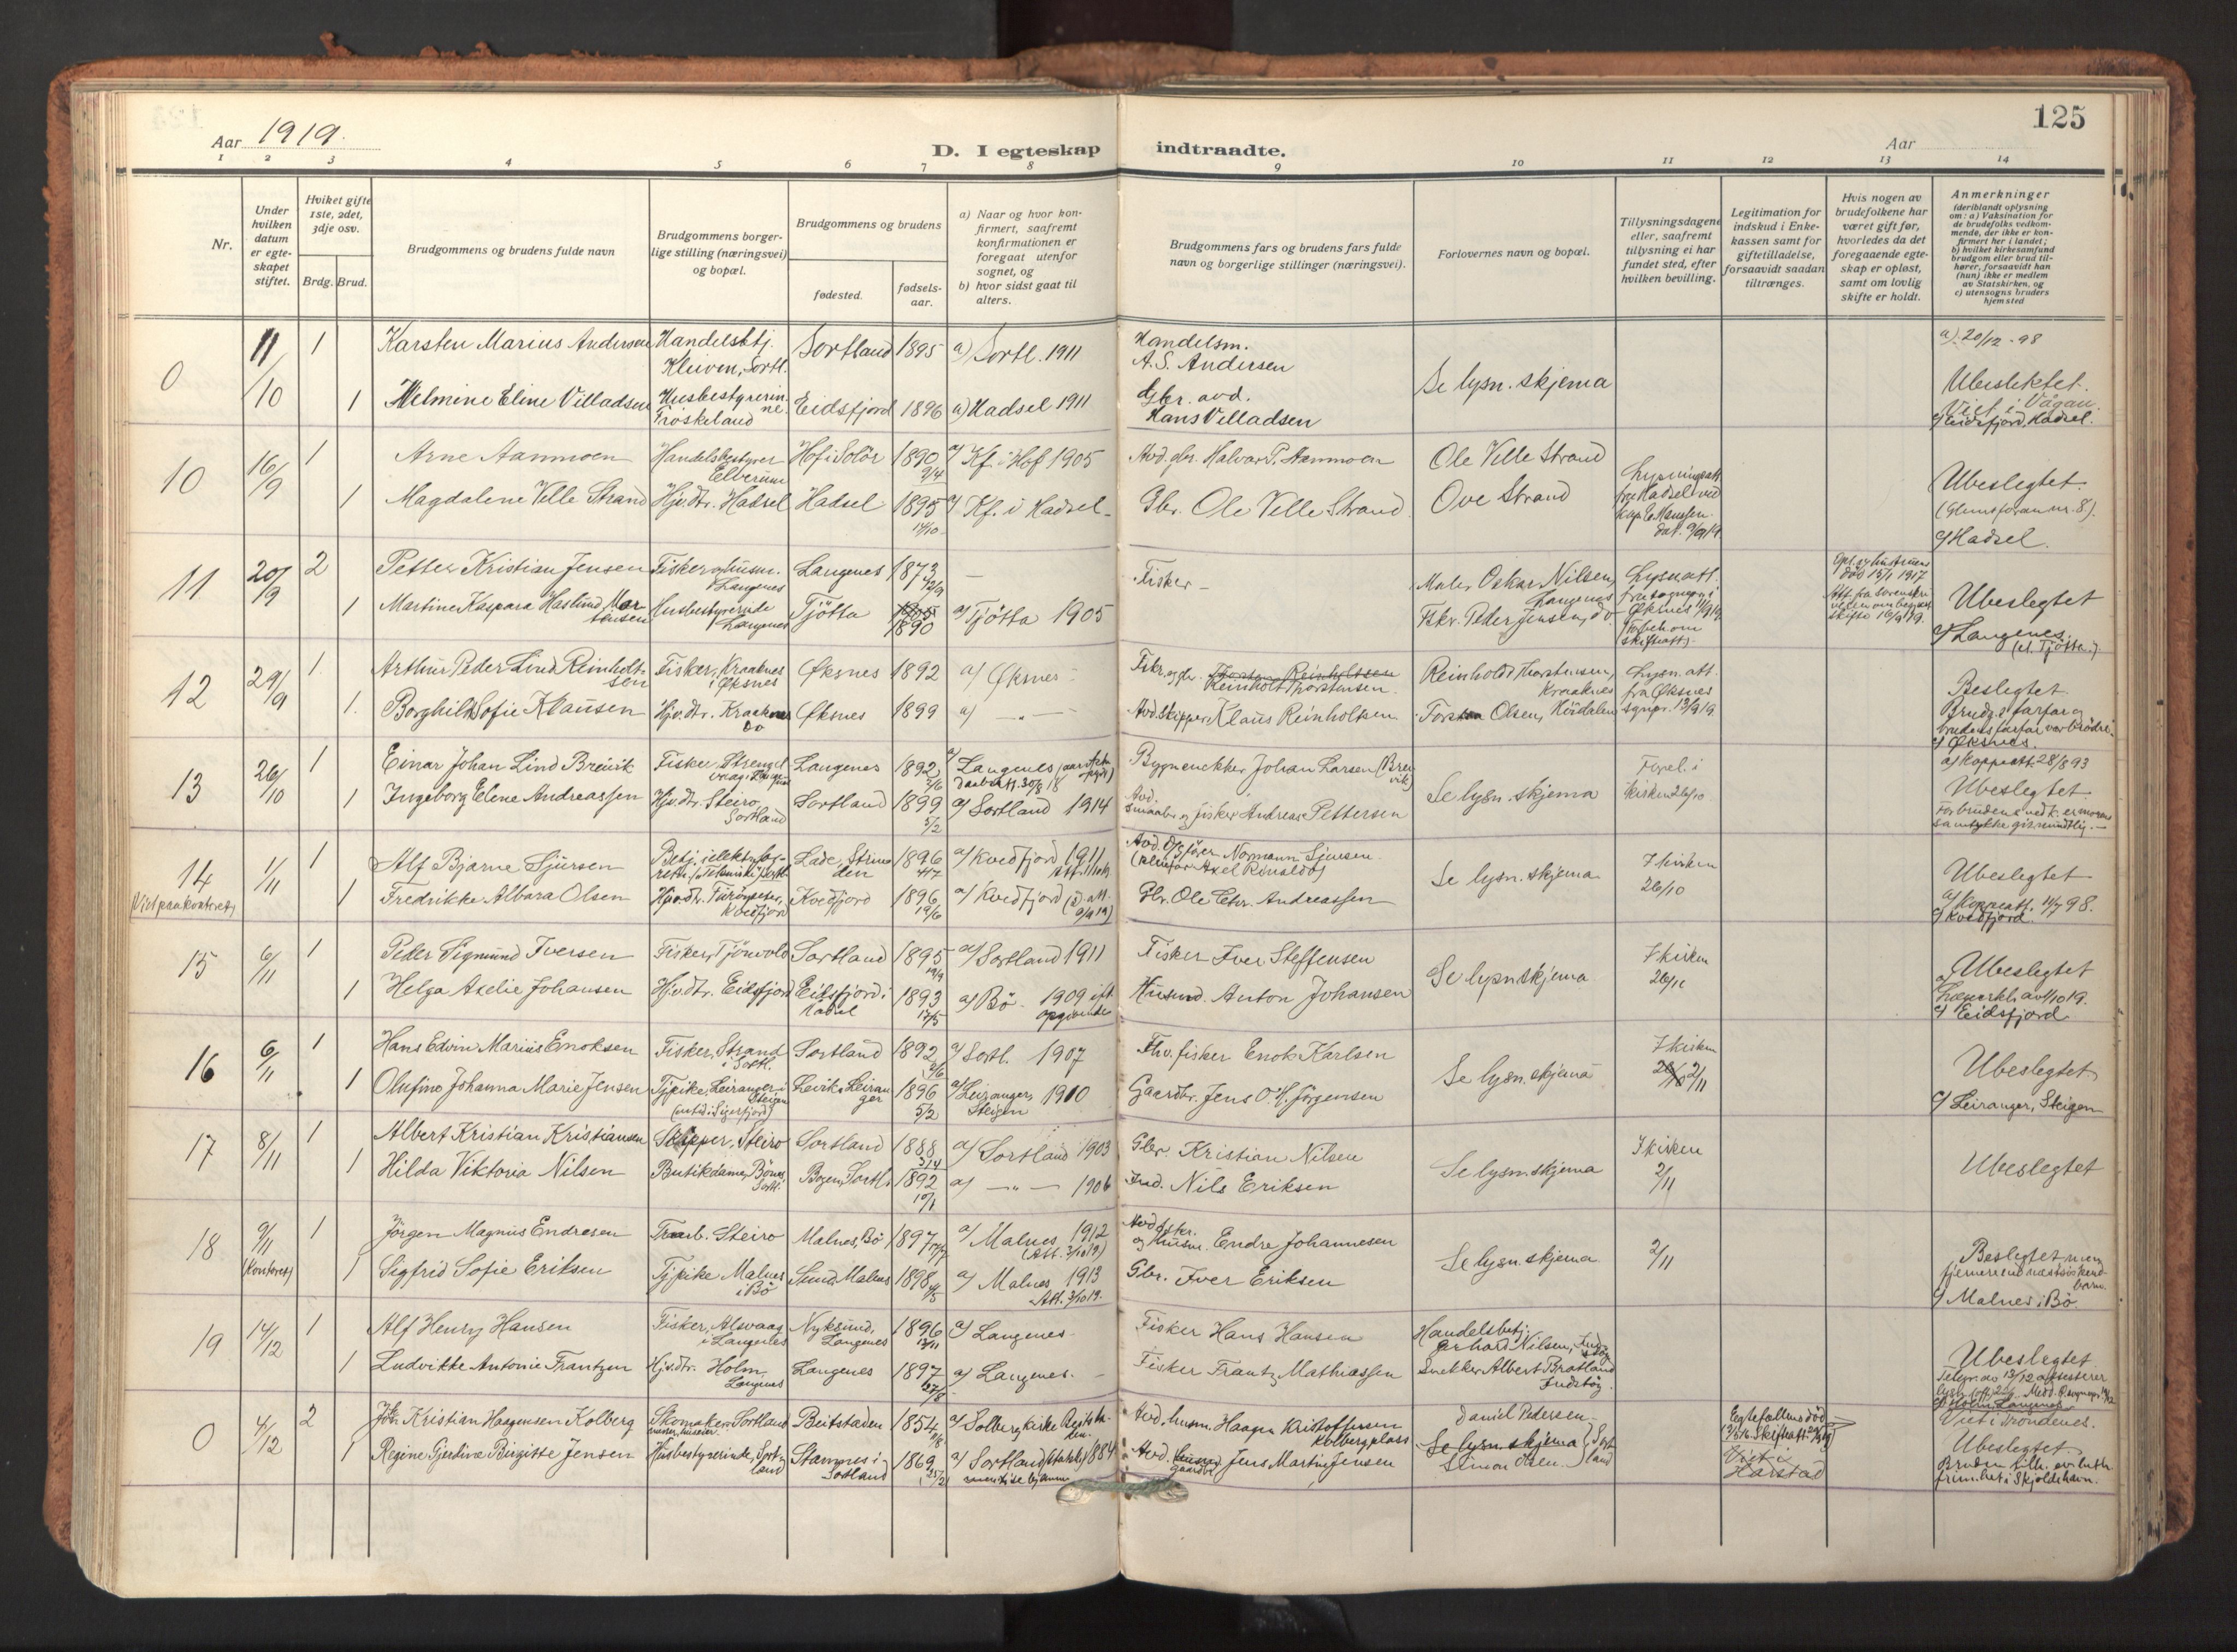 125
Aar 1919.
D. I egteskap indtraadte.
Aar
1 2 3 4 5 6 7 8 9 10 11 12 13 14
Nr.
Under hvilken datum er egteskapet stiftet.
Hviket gifte 1ste, 2det, 3dje osv.
Brdg. Brud.
Brudgommens og brudens fulde navn
Brudgommens borgerlige stilling (næringsvei) og bopæl.
Brudgommens og brudens
fødested.
fødselsaar.
a) Naar og hvor konfirmert, saafremt konfirmationen er foregaat utenfor sognet, og
b) hvor sidst gaat til alters.
Brudgommens fars og brudens fars fulde navn og borgerlige stillinger (næringsvei).
Forlovernes navn og bopæl.
Tillysningsdagene eller, saafremt tillysning ei har fundet sted, efter hvilken bevilling.
Legitimation for indskud i Enkekassen samt for giftetilladelse, forsaavidt saadan tiltrænges.
Hvis nogen av brudefolkene har været gift før, hvorledes da det foregaaende egteskap er opløst, samt om lovlig skifte er holdt.
Anmerkninger
(deriblandt oplysning om: a) Vaksination for de brudefolks vedkommende, der ikke er konfirmert her i landet; b) hvilket kirkesamfund brudgom eller brud tilhører, forsaavidt han (hun) ikke er medlem av Statskirken, og c) utensogns bruders hjemsted
0 11/10 1 Karsten Marius Andersen Handelsbtj. Kleiven, Sortl. Sortland 1895 a) Sortl. 1911 Handelsm. A.S. Andersen Se lysn. skjema a) 20/12-98
1 Helmine Eline Villadsen Husbestyrerinne Frøskeland Eidsfjord 1896 a) Hadsel 1911 Gbr. avd. Hans Villadsen Ubeslektet. Viet i Vågan. c) Eidsfjord, Hadsel.
10 16/9 1 Arne Aanmoen Handelsbestyrer Elverum Hof i Solör 1890 9/4 a) Kf. i Hof 1905 Avd. gbr. Halvar T. Aanmoen Ole Velle Strand
1 Magdalene Velle Strand Hjv.dtr. Hadsel Hadsel 1895 14/10 a) Kf. i Hadsel Gbr. Ole Velle Strand Ove Strand Lysningsatt fra Hadsel ved dat. 9/9 19 Ubeslegtet. c) Hadsel.
11 20/9 2 Petter Kristian Jensen Fisker og husm. Langenes Langenes 1873 Fisker – Maler Oskar Nilsen, Langenes Lysn.att. fra sogнepr. i Øksnes
1 Martine Kaspara Haslund Mortensen Husbestyrerinde Langenes Tjötta 1890 a) Tjötta 1905 Fskr. Peder Jensen, do. Ubeslegtet c) Langenes (el. Tjötta).
12 29/9 1 Arthur Peder Lind Reinholtsen Fisker, Kraaknes i Øksnes Øksnes 1892 a) Øksnes Fskr. og gbr. Reinholt Thorstensen. Reinholdt Thorstensen, Kraaknes Lysn. att. fra Øksnes sgnpr. 13/9 19
1. Borghild Sofie Klausen Hjv.dtr. Kraaknes do Øksnes 1899 a) —"— Avd. Skipper Klaus Reinholtsen Torstein Olsen, Höidalen Beslegtet. Brudg.s farfar og brudens farfar var brödre. c) Øksnes.
13 26/10 1 Einar Johan Lind Breivik Fisker, Strengelvaag, Langenes Langenes 1892 2/6 a) Langenes Bygnsnekker Johan Larsen (Breivik) Se lysn. skjema Forel. i kirken 26/10 a) Koppeatt. 28/8 93
1 Ingeborg Elene Andreassen Hjv.dtr. Steiro, Sortland Sortland 1899 5/2 a) Sortland 1914 Avd. smaabr. og fisker Andreas Pettersen Ubeslegtet
14 1/11 (Viet paa kontoret) 1 Alf Bjarne Sjursen Lade, Strinden 1896 4/7 a) Kvedfjord 1911 Avd. D/S förer Normann Sjursen Se lysn. skjema I kirken 26/10
1 Fredrikke Albara Olsen Kvedfjord 1896 19/6 a) Kvedfjord Gbr. Ole Chr. Andreassen Ubeslegtet a) Koppeatt. 4/7 98. c) Kvedfjord.
15 6/11 1 Peder Sigmund Iversen Fisker, Tjörvold Sortland 1895 19/9 a) Sortland 1911 Fisker Iver Steffensen Se lysn skjema I kirken 26/10
1 Helga Axelie Johansen Hjv.dtr. Eidsfjord Eidsfjord i Hadsel 1893 17/5 a) Bö 1909 ift. opgivende Husmd. Anton Johansen Ubeslegtet c) Eidsfjord
16 6/11 1 Hans Edvin Marius Enoksen Fisker, Strand i Sortl. Sortland 1892 2/6 a) Sortl. 1907 Fhv. fisker Enok Karlsen Se lysn. skjema I kirken 2/11
1 Olufine Johanna Marie Jensen Tjpike, Leiranger i Steigen Levik, Leiranger 1896 5/2 a) Leiranger, Steigen 1910 Gaardbr. Jens O. H. Jörgensen Ubeslegtet c) Leiranger, Steigen
17 8/11 1 Albert Kristian Kristiansen Skipper, Steiro Sortland 1888 a) Sortland 1903 Gbr. Kristian Nilsen Se lysn. skjema I kirken 2/11
1 Hilda Viktoria Nilsen Butikdame, Bönes, Sortl. Bogen, Sortl. 1892 10/1 a) —"— 1906 Ind. Nils Eriksen Ubeslegtet
18 9/11 (Kontoret) 1 Jörgen Magnus Endresen Steiro Malnes, Bö 1897 a) Malnes 1912 (Att. 3/10 19) Avd. fskr. og husm. Endre Johannesen Se lysn. skjema 2/11
1 Sigfrid Sofie Eriksen Tjpike Malnes i Bö Sund Malnes 1898 a) Malnes 1913 Att. 3/10 19. Gbr. Iver Eriksen Beslegtet, men fjernere end næstsöskendbarn. c) Malnes i Bö
19 14/12 1 Alf Henry Hansen Fisker, Alsvaag i Langenes Nyksund, Langenes 1896 a) Langenes Fisker Hans Hansen Handelsbetj. Gerhard Nilsen,
1 Ludvikke Antonie Frantzen Hjv.dtr. Holm, Langenes Langenes 1897 27/8 a) Langenes. Fisker Frantz Mathiassen Snekker Albert Bratland Ubeslegtet c) Holm, Langenes
0 4/12 2 Joh. Kristian Haagensen Kolberg Skomaker, Sortland Beitstaden 1854 a) Solberg kirke Beitstaden. Avd. husm. Haagen Kristoffersen Kolbergplass Daniel Pedersen Egtefællens död Viet i Trondenes.
1 Regine Gjertine Birgitte Jensen Husbestyrerinde, Sortland Stamnes i Sortland 1869 25/2 a) Sortland 1884 Avd. gaardbr. Jens Martin Jensen Se lysn. skjema Simon Olsen Sortland Viet i Harstad Ubeslegtet. Bruden tilh. ev. luth. frimen. i Skjoldehavn.